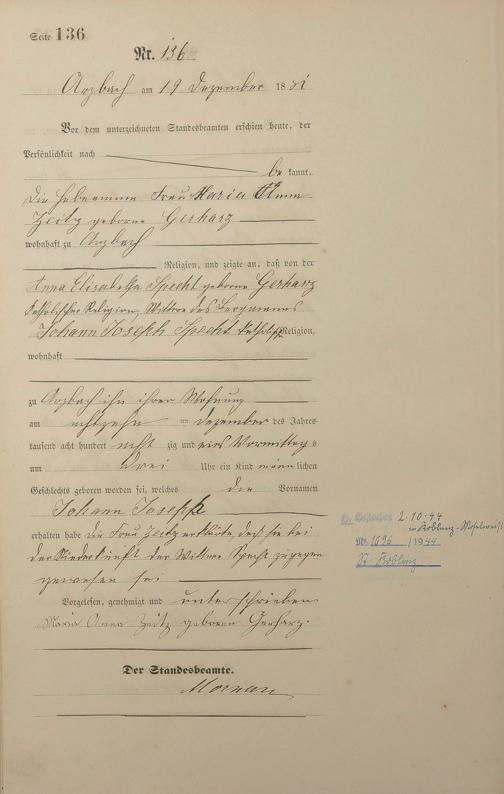 Seite 136
Nr. 136
Arzbach am 19 Dezember 1881
Vor dem unterzeichneten Standesbeamten erschien heute, der
Persönlichkeit nach
be kannt,
die Hebamme Frau Maria Anna
Zeitz geborne Gerharz
wohnhaft zu Arzbach
Religion, und zeigte an, daß von der
Anna Elisabetha Specht geborne Gerharz
katholischer Religion, Wittwe des Bergmanns
Johann Joseph Specht katholisch Religion,
wohnhaft
zu Arzbach ihn ihrer Wohnung
am achtzehn Dezember des Jahres
tausend acht hundert acht zig und Vormittags
um drei Uhr ein Kind männlichen
Geschlechts geboren worden sei, welches die Vornamen
Johann Joseph
erhalten habe die Frau Zeitz erklärte, daß sie bei
der Niederkunft der Wittwe Specht zugegen
gewesen sei
Vorgelesen, genehmigt und unterschrieben
Maria Anna Zeitz geboren Gerharz.
Der Standesbeamte.
2.10.44
in Koblenz-Moselweiß
Nr. 1696 / 1944
St. Koblenz